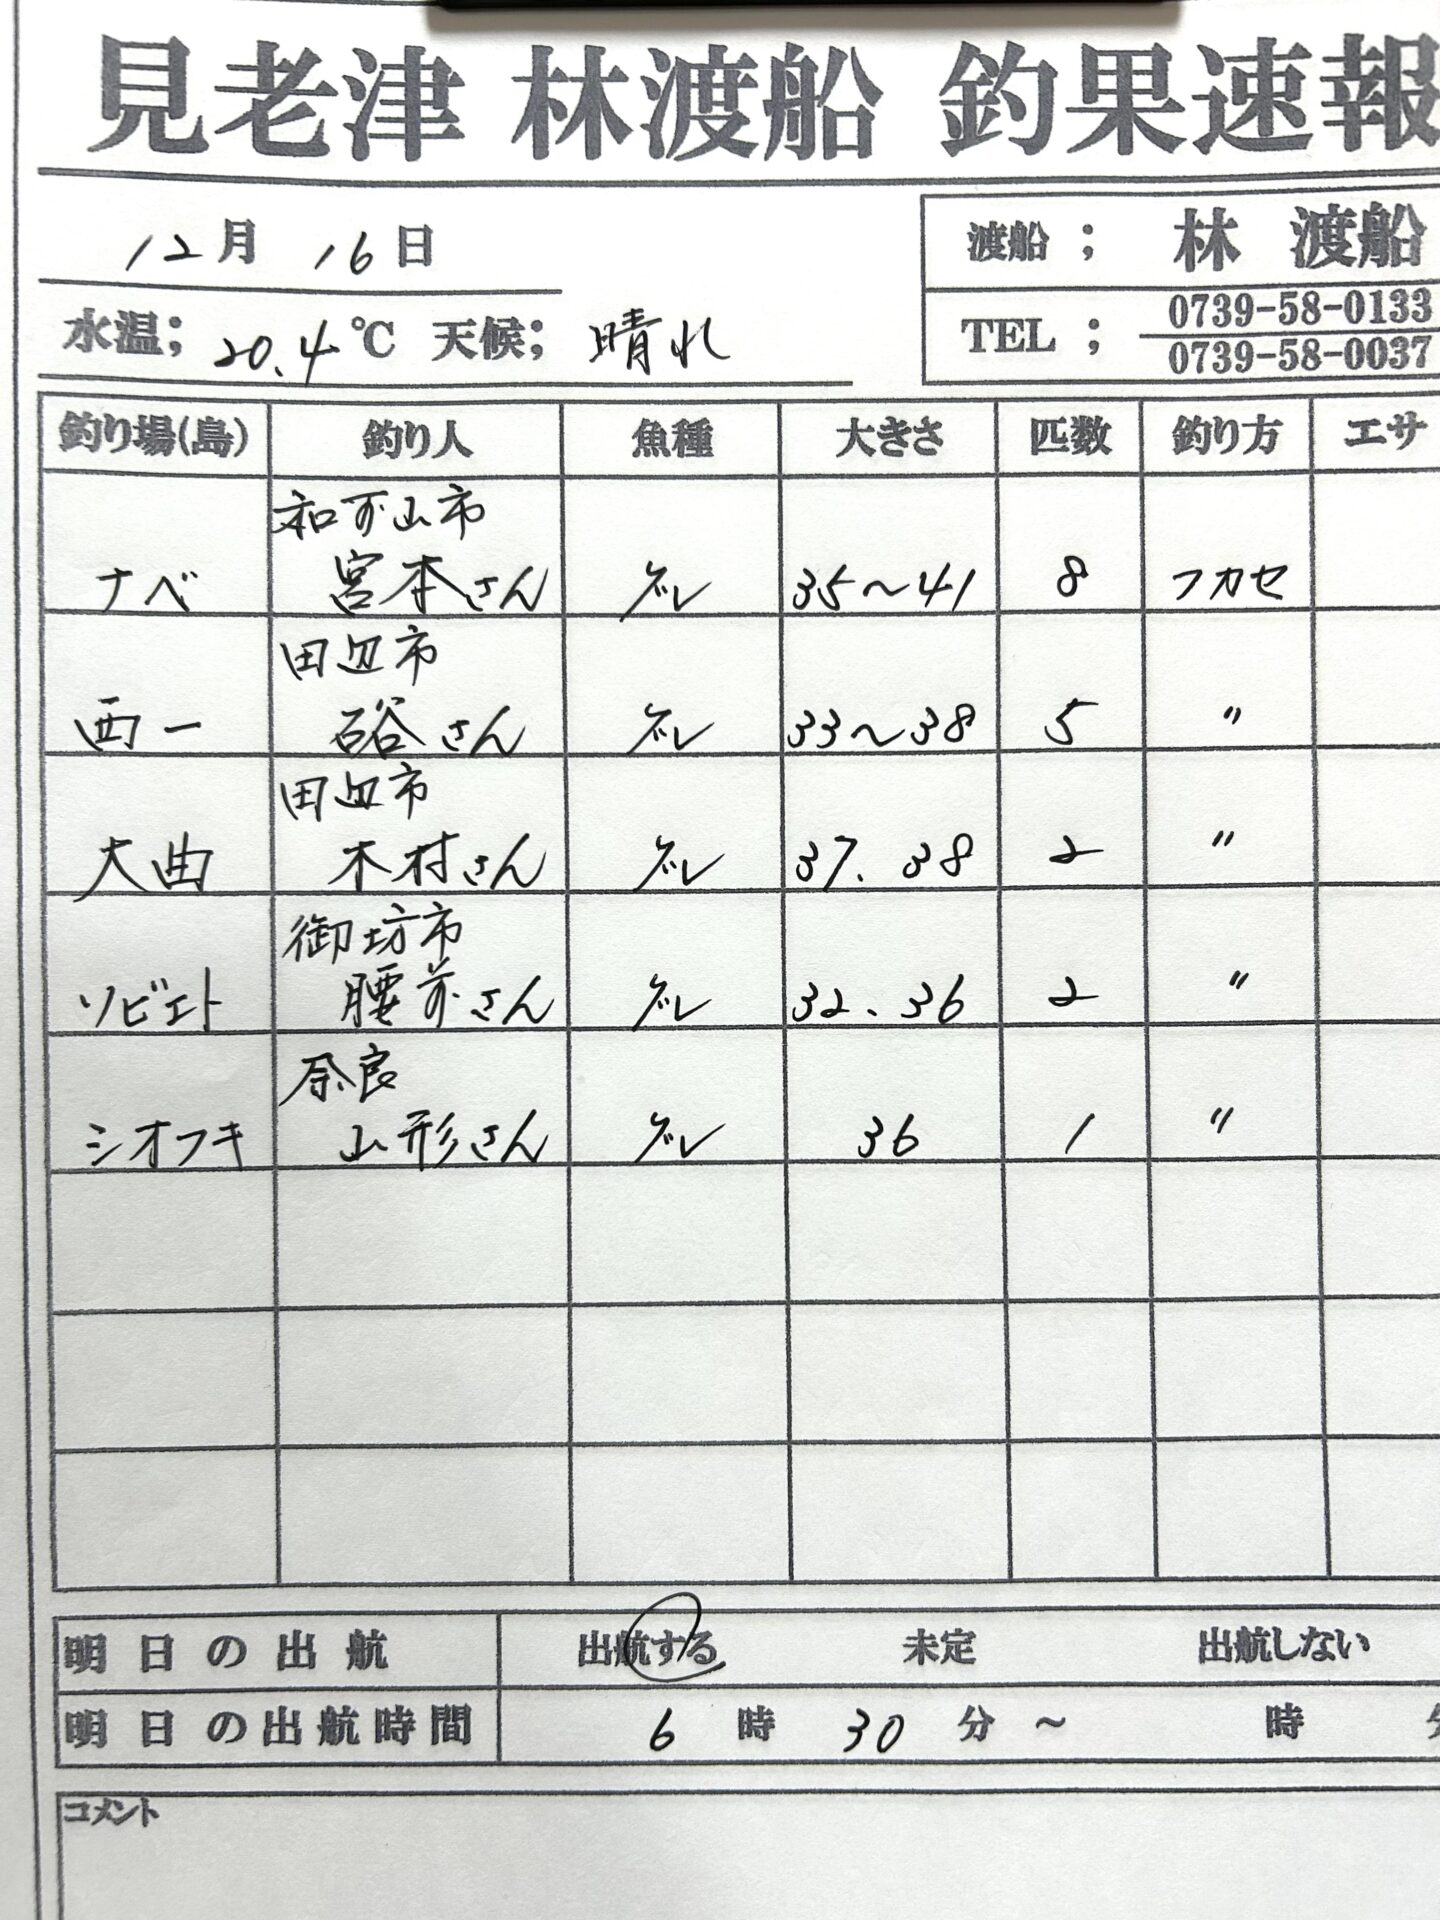 見老津 林渡船 釣果速報
12月 16日
渡船 ; 林 渡船
水温; 20.4 ℃ 天候; 晴れ
TEL ; 0739-58-0133
0739-58-0037
釣り場(島) 釣り人 魚種 大きさ 匹数 釣り方 エサ
和歌山市
ナベ 宮本さん グレ 35〜41 8 フカセ
田辺市
西一 硲さん グレ 33〜38 5 〃
田辺市
大曲 木村さん グレ 37、38 2 〃
御坊市
ソビエト 腰前さん グレ 32、36 2 〃
奈良
シオフキ 山形さん グレ 36 1 〃
明日の出航 出航する 未定 出航しない
明日の出航時間 6 時 30 分 ~ 時
コメント